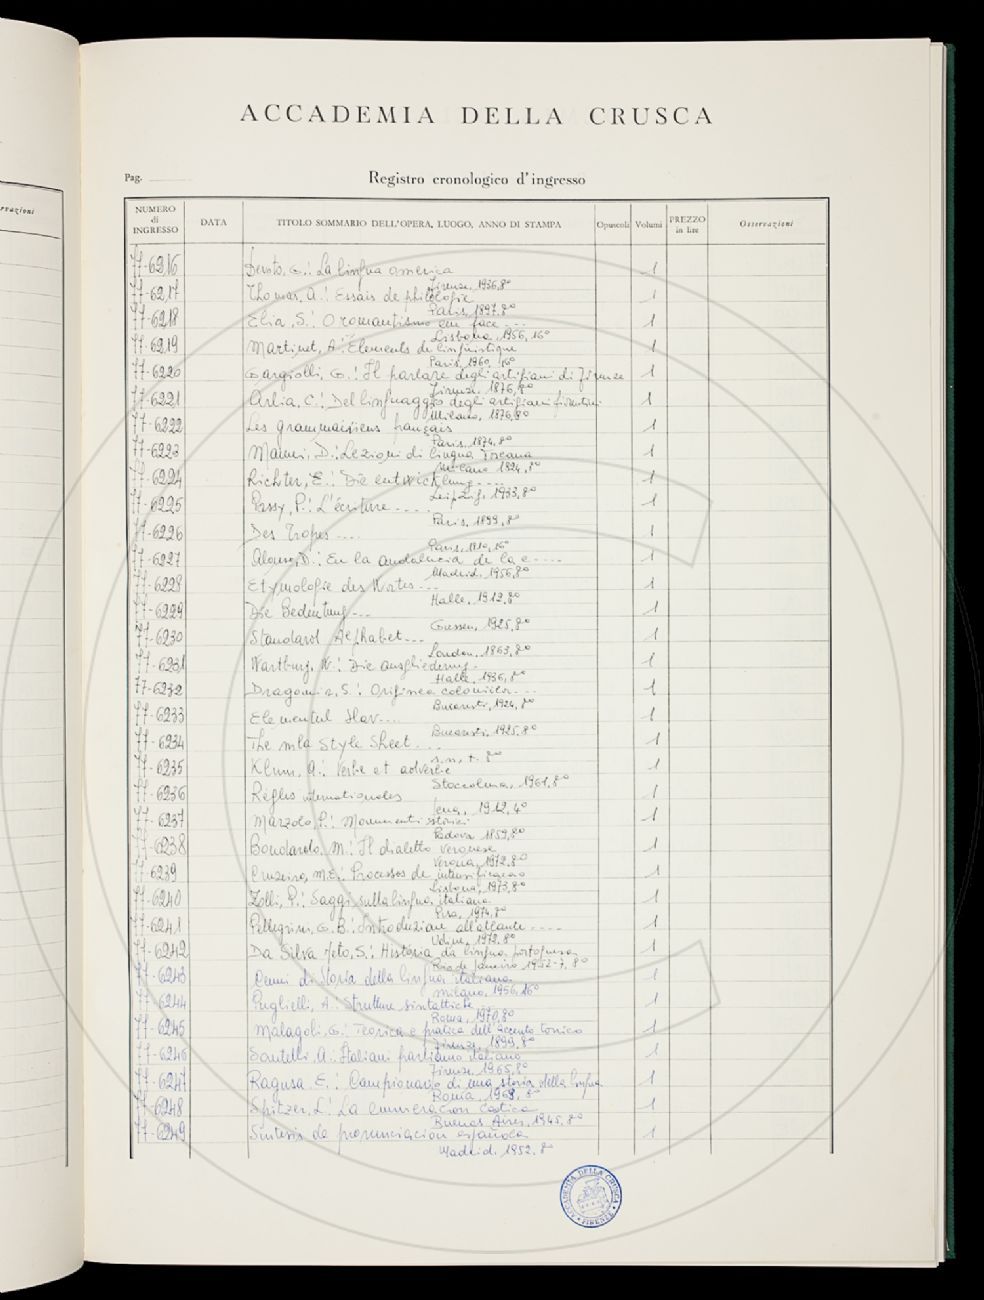 ACCADEMIA DELLA CRUSCA
Pag.
Registro cronologico d'ingresso
rvazioni
NUMERO di INGRESSO DATA TITOLO SOMMARIO DELL'OPERA, LUOGO, ANNO DI STAMPA Opuscoli Volumi PREZZO in lire Osservazioni
77-6216 G.: La lingua omerica 1
Firenze, 1936, 8º
77-6217 Thomas, A.: Essais de philologie 1
Paris, 1897, 8º
77-6218 Elia, S.: O romantismo em face ... 1
Lisbona, 1956, 16º
77-6219 Martinet, A.: Elements de linguistique 1
Paris, 1960, 16º
77-6220 Gargiolli, G.: Il parlare degli artigiani di Firenze 1
Firenze, 1876, 8º
77-6221 Arlia, C.: Del linguaggio degli artigiani fiorentini 1
Milano, 1876, 8º
77-6222 Les grammairiens français 1
Paris, 1874, 8º
77-6223 D.: Lezioni di lingua toscana 1
Milano 1824, 8º
77-6224 Richter, E.: Die entwicklung .... 1
Leipzig, 1933, 8º
77-6225 Passy, P.: L'écriture .... 1
Paris, 1899, 8º
77-6226 Des Tropes .... 1
Paris, 1810, 16º
77-6227 Alonso, D.: En la andalucia de la e .... 1
Madrid, 1956, 8º
77-6228 Etymologie des Wortes ... 1
Halle, 1912, 8º
77-6229 Die Bedeutung ... 1
Giessen, 1925, 8º
77-6230 Standard Alphabet ... 1
London, 1863, 8º
77-6231 Wartburg, W.: Die ausgliederung. 1
Halle, 1936, 8º
77-6232 Dragomir, S.: Originea coloniilor ... 1
Bucuresti, 1924, 8º
77-6233 Elementul slav ... 1
Bucuresti, 1925, 8º
77-6234 The mla Style Sheet ... 1
s.n.t. 8º
77-6235 Klum, A.: Verbe et adverbe 1
Stoccolma, 1961, 8º
77-6236 Règles internationales 1
Jena, 1912, 4º
77-6237 Marzolo, P.: Monumenti storici 1
Padova 1859, 8º
77-6238 Bondardo, M.: Il dialetto veronese 1
Verona, 1972, 8º
77-6239 Cruzeiro, M.E.: Processos de intensificacao 1
Lisbona, 1973, 8º
77-6240 Zolli, P.: Saggi sulla lingua italiana 1
Pisa, 1974, 8º
77-6241 Pellegrini, G.B.: Introduzione all'atlante .... 1
Udine, 1972, 8º
77-6242 Da Silva Neto, S.: História da língua portoguesa 1
Rio de Janeiro 1952-7, 8º
77-6243 Cenni di Storia della lingua italiana 1
Milano, 1956, 16º
77-6244 Puglielli, A.: Strutture sintattiche ... 1
Roma, 1970, 8º
77-6245 Malagoli, G.: Teorica e pratica dell'accento tonico 1
Firenze, 1899, 8º
77-6246 Santelli, A.: Italiani parliamo italiano 1
Firenze, 1965, 8º
77-6247 Ragusa, E.: Campionario di una storia della lingua 1
Roma, 1968, 8º
77-6248 Spitzer, L.: La enumeracion caotica 1
Buenos Aires, 1945, 8º
77-6249 Sintesis de pronunciacion española 1
Madrid, 1952, 8º
ACCADEMIA DELLA CRUSCA • FIRENZE •